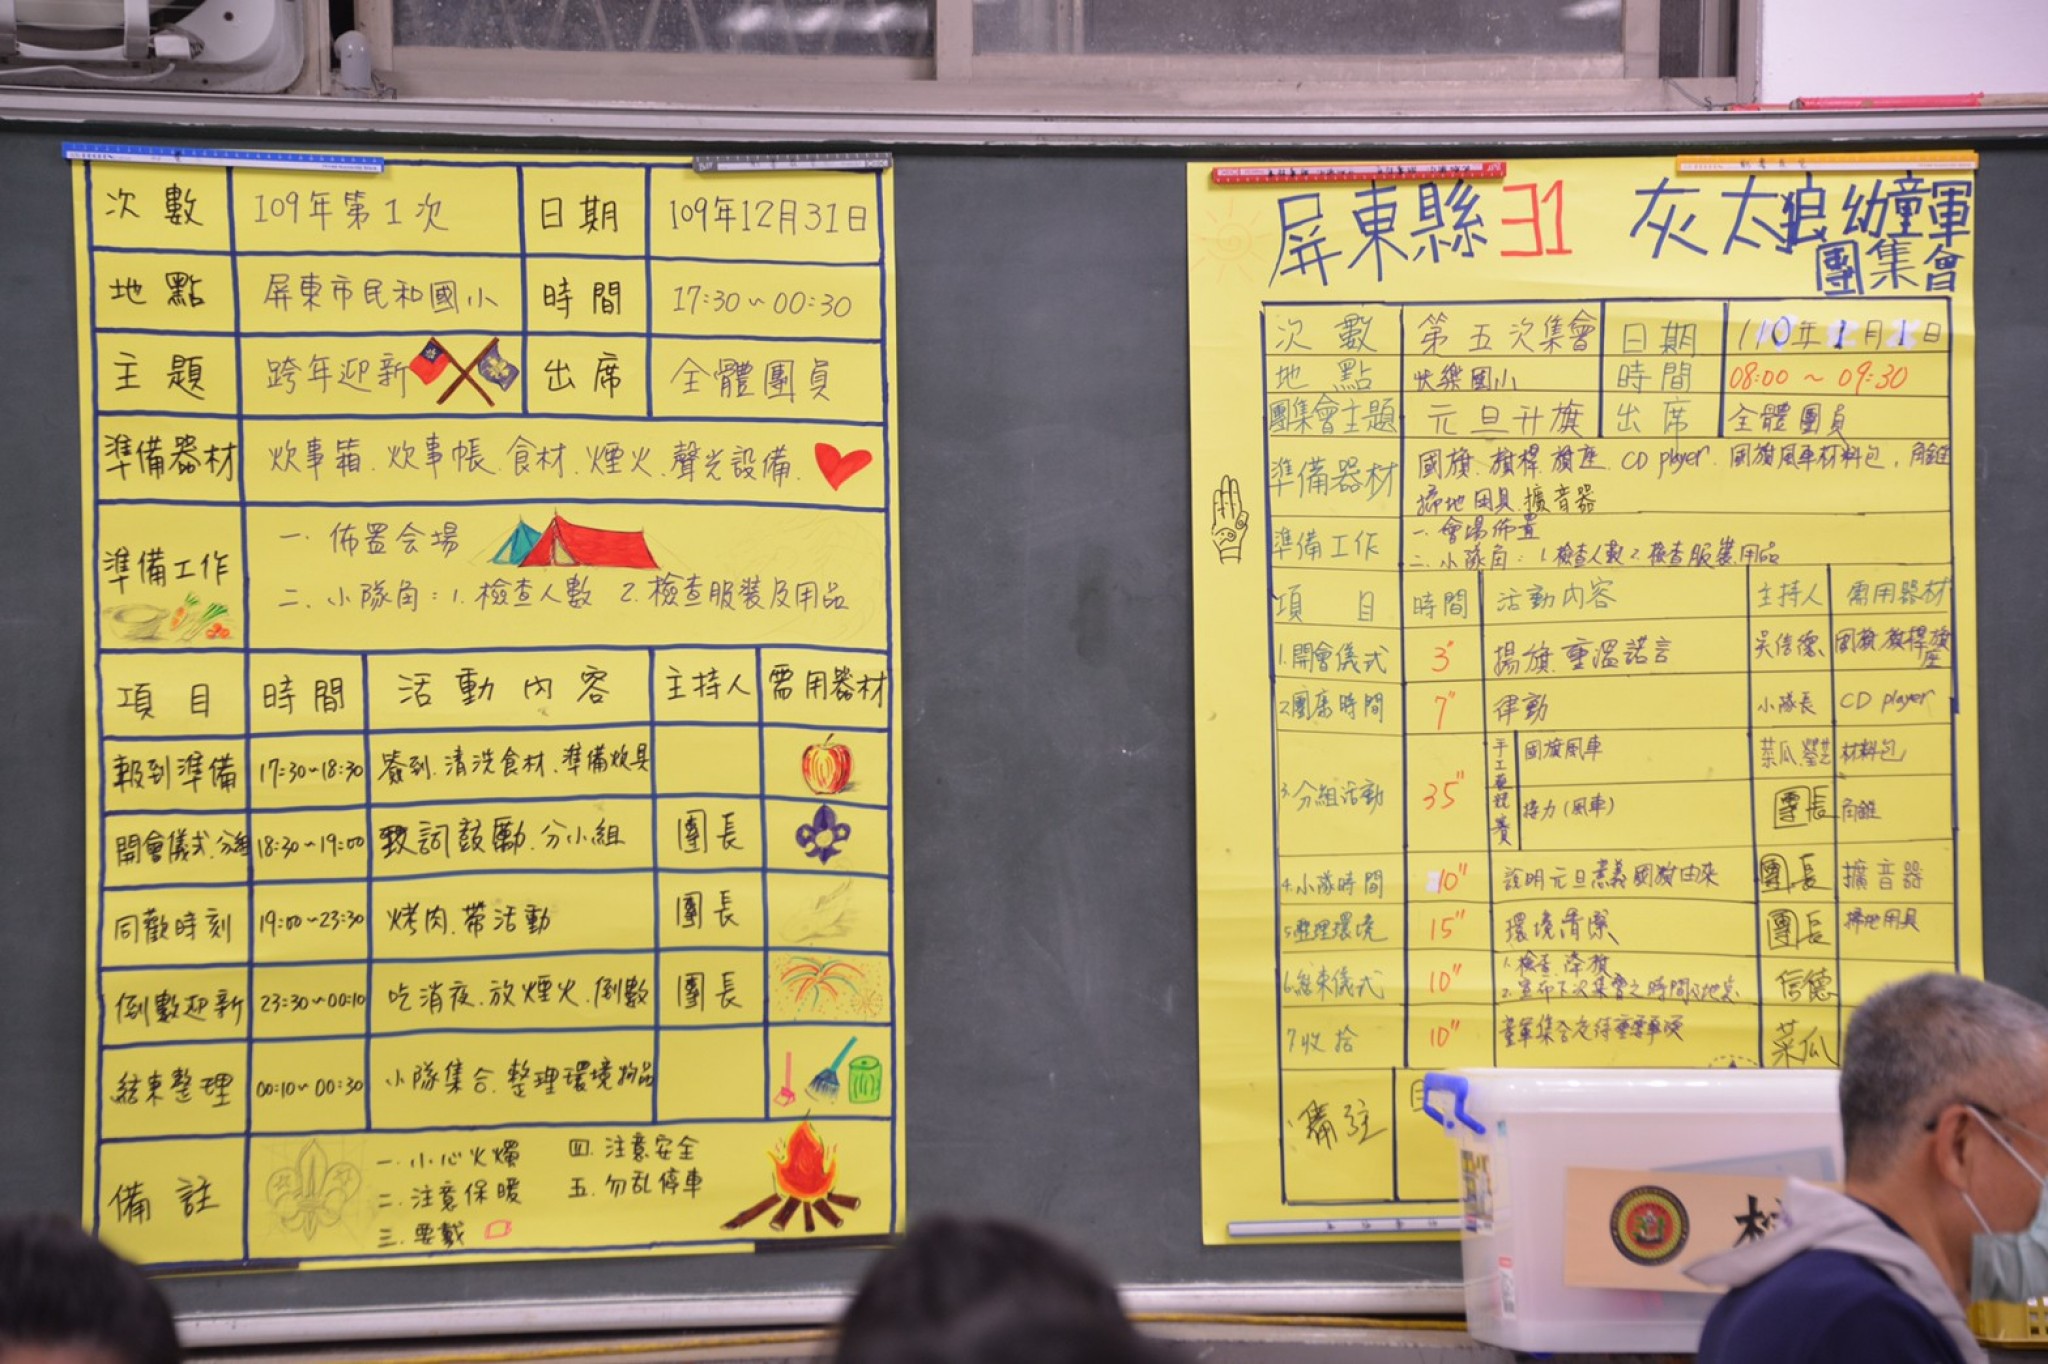 次數 109年第1次 日期 109年12月31日
地點 屏東市民和國小 時間 17:30~00:30
主題 跨年迎新 出席 全體團員
準備器材 炊事箱、炊事帳、食材、煙火、聲光設備、
準備工作 一、佈置会場
二、小隊角:1.檢查人數 2.檢查服裝及用品
項目 時間 活動內容 主持人 需用器材
報到準備 17:30~18:30 簽到、清洗食材、準備炊具
開會儀式、分組 18:30~19:00 致詞鼓勵、分小組 團長
同歡時刻 19:00~23:30 烤肉、帶活動 團長
倒數迎新 23:30~00:10 吃消夜、放煙火、倒數 團長
結束整理 00:10~00:30 小隊集合、整理環境物品
備註 一、小心火燭 四、注意安全
二、注意保暖 五、勿乱停車
三、要戴
屏東縣31 灰太狼幼童軍
團集會
次數 第五次集會 日期 110年1月1日
地點 快樂國小 時間 08:00~09:30
團集會主題 元旦升旗 出席 全體團員
準備器材 國旗、旗桿、旗座、CD player、國旗風車材料包、角錐
掃地用具、擴音器
準備工作 一、會場佈置
二、小隊角:1.檢查人數 2.檢查服裝、用品
項目 時間 活動內容 主持人 需用器材
1.開會儀式 3" 揚旗、重溫諾言 吳信德 國旗、旗桿、旗座
2.團席時間 7" 律動 小隊長 CD player
3.分組活動 35" 手工藝 國旗風車 菜瓜、 材料包
競賽 接力(風車) 團長 角錐
4.小隊時間 10" 說明元旦意義國旗由來 團長 擴音器
5.整理環境 15" 環境清潔 團長 掃地用具
6.結束儀式 10" 1.檢查、降旗 信德
2.宣布下次集會之時間及地點
7.收拾 10" 童軍集合 菜瓜
備註